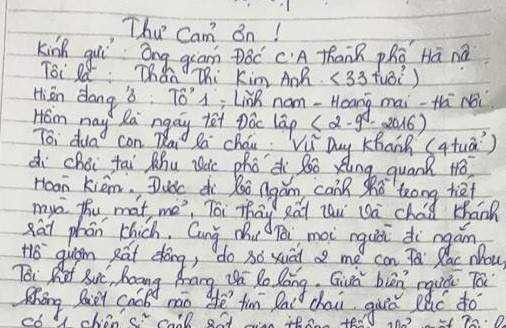 Thư Cảm ơn !
Kính gửi : Ông giám Đốc C.A thành phố Hà nội
Tôi là : Thân Thị Kim Anh (33 tuổi)
Hiện đang ở : Tổ 1 - Lĩnh nam - Hoàng mai - Hà Nội.
Hôm nay là ngày tết Độc lập (2-9-2016)
Tôi đưa con trai là cháu : Vũ Duy Khánh (4 tuổi)
đi chơi tại khu vực phố đi bộ xung quanh Hồ
Hoàn Kiếm. Được đi bộ ngắm cảnh hồ trong tiết
mùa thu mát mẻ. Tôi thấy rất vui và cháu Khánh
rất phấn khích. Cũng như Tôi mọi người đi ngắm
Hồ gươm rất đông, do sơ xuất 2 mẹ con Tôi lạc nhau,
Tôi hết sức hoang mang và lo lắng. Giữa biển người Tôi
không biết cách nào để tìm lại cháu, giữa lúc đó
có 1 chiến sĩ cảnh sát giao thông